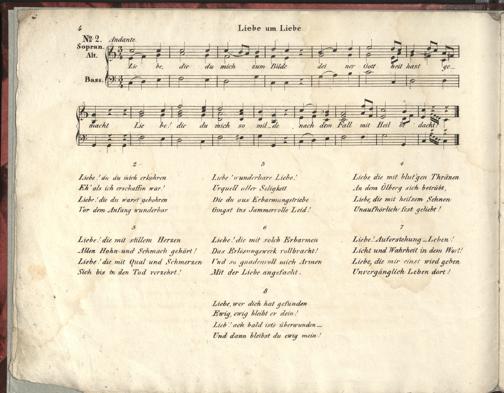 4
Liebe um Liebe
Nº 2. Andante.
Sopran.
Alt.
Lie be, die du mich zum Bilde dei ner Gott heit hast ge_
Bass.
macht Lie be! die du mich so mil_de nach dem Fall mit Heil be dacht!
2
Liebe! die du mich erkohren
Eh' als ich erschaffen war!
Liebe! die du warst gebohren
Vor dem Anfang wunderbar
3
Liebe! wunderbare Liebe!
Urquell aller Seligkeit
Die du aus Erbarmungstriebe
Giengst ins Jammervolle Leid!
4
Liebe die mit blut'gen Thränen
An dem Ölberg sich betrübt,
Liebe, die mit heilsem Sehnen
Unaufhörlich fest geliebt!
5
Liebe! die mit stillem Herzen
Allen Hohn und Schmach gehört!
Liebe! die mit Qual und Schmerzen
Sich bis in den Tod verzehrt!
6
Liebe! die mit solch Erbarmen
Das Erlösungswerk vollbracht!
Und so gnadenvoll mich Armen
Mit der Liebe angefacht.
7
Liebe! Auferstehung_Leben!
Licht und Wahrheit in dem Wort!
Liebe, die mir einst wird geben
Unvergänglich Leben dort!
8
Liebe, wer dich hat gefunden
Ewig, ewig bleibt er dein!
Lieb' ach bald ists überwunden_
Und dann bleibst du ewig mein!